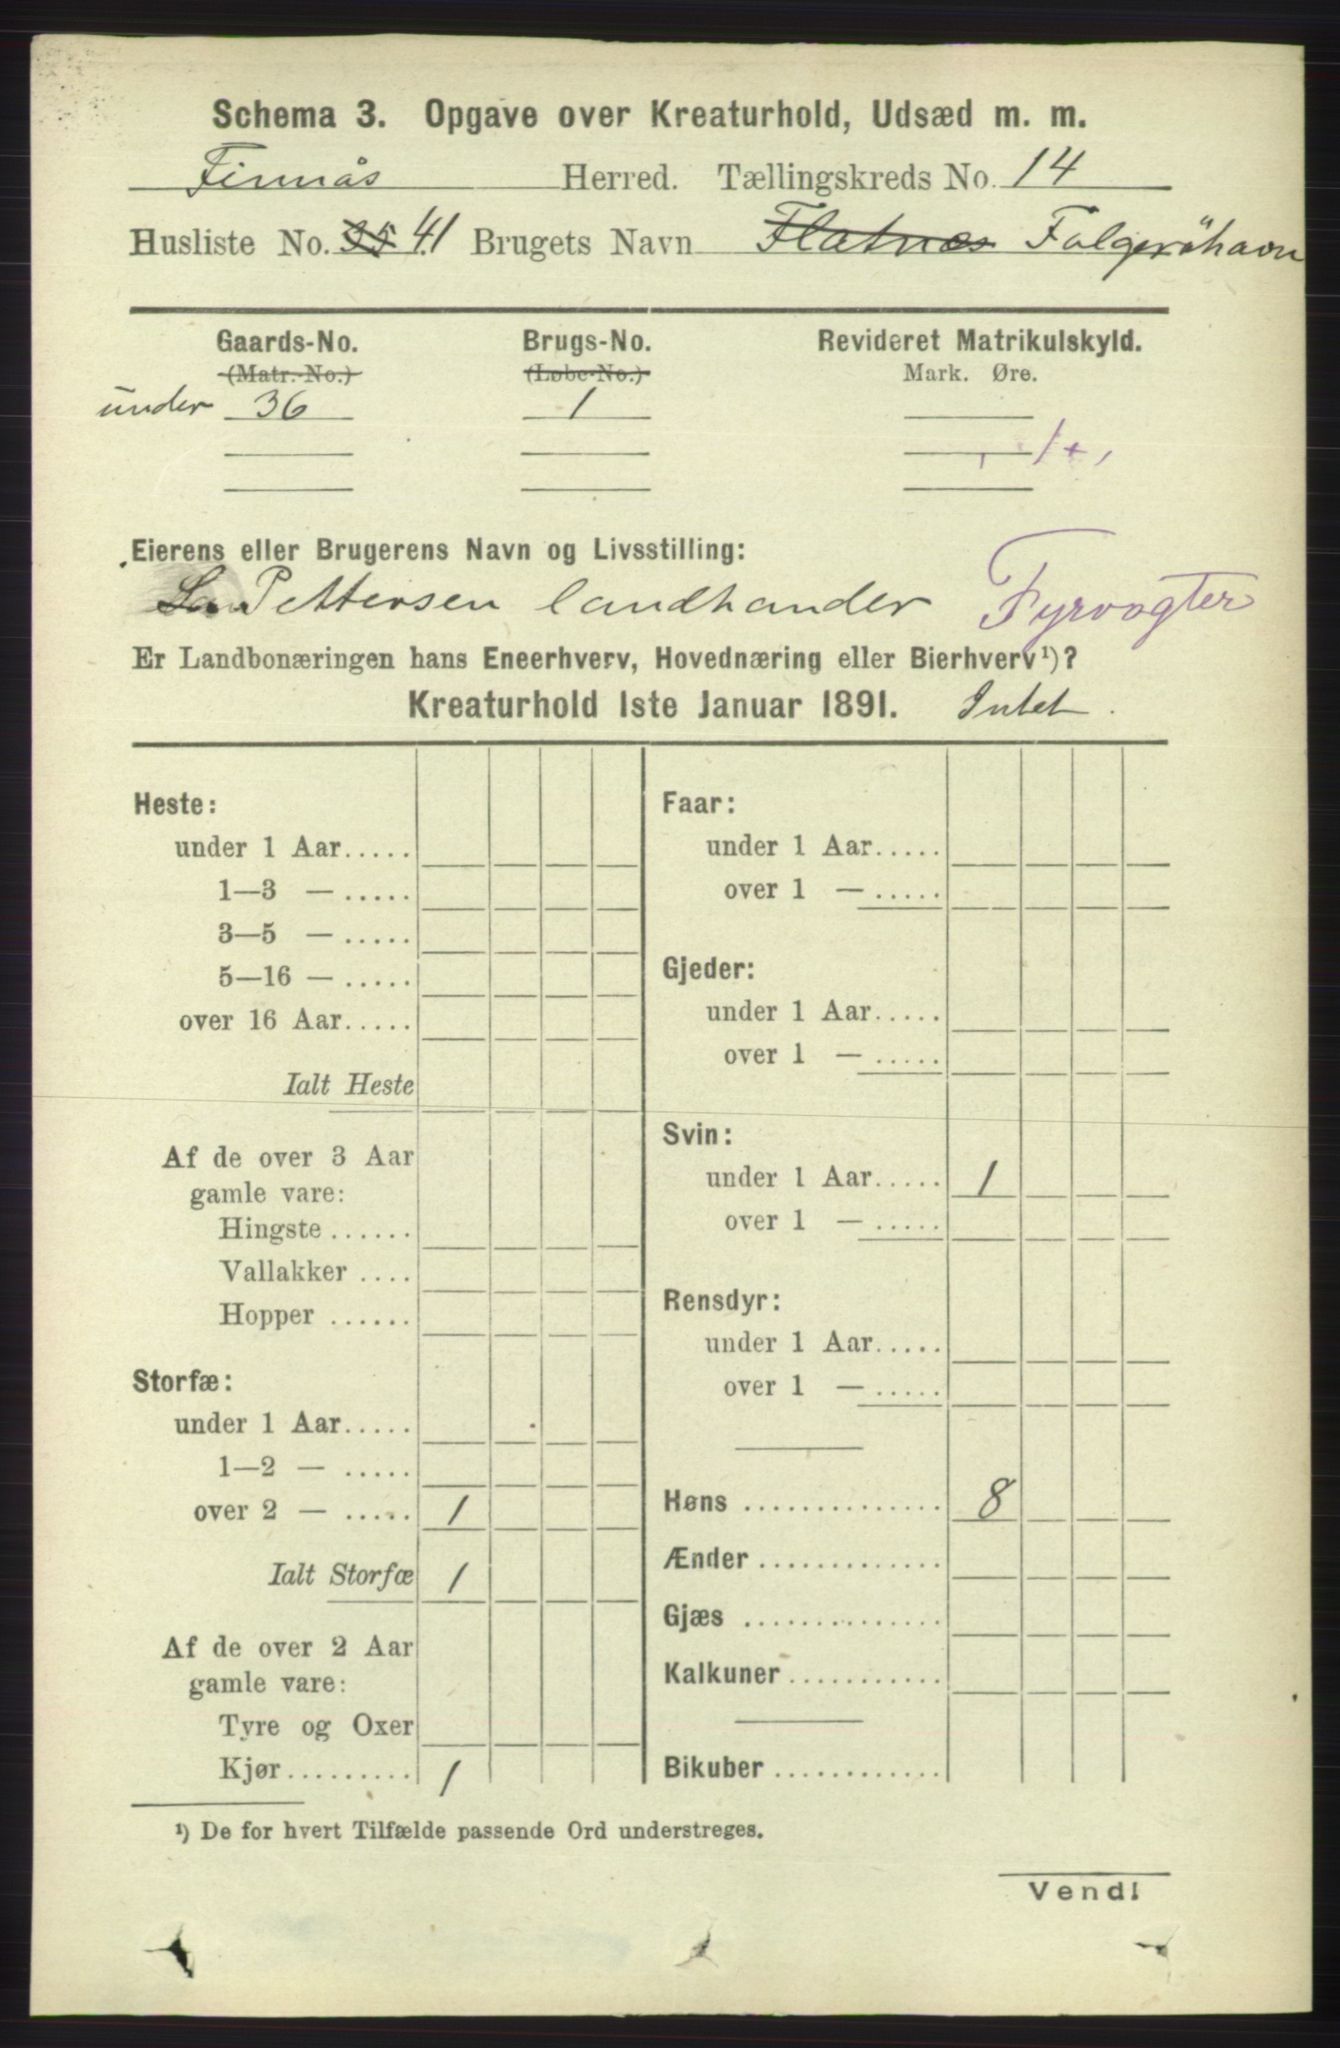 Schema 3. Opgave over Kreaturhold, Udsæd m. m.
Finnås Herred. Tællingskreds No. 14
Husliste No. 35 41 Brugets Navn Flatnæs Folgeröhavn
Gaards-No. Brugs-No. Revideret Matrikulskyld.
(Matr.-No.) (Løbe-No.) Mark. Øre.
under 36 1
, 1+,
Eierens eller Brugerens Navn og Livsstilling:
Pettersen landhandler Fyrvogter
Er Landbonæringen hans Eneerhverv, Hovednæring eller Bierhverv¹)?
Kreaturhold 1ste Januar 1891. Intet.
Heste:
under 1 Aar.....
1—3 — .....
3—5 — .....
5—16 — .....
over 16 Aar.....
Ialt Heste
Af de over 3 Aar
gamle vare:
Hingste ......
Vallakker ....
Hopper ......
Storfæ:
under 1 Aar.....
1—2 — .....
over 2 — ..... 1
Ialt Storfæ 1
Af de over 2 Aar
gamle vare:
Tyre og Oxer
Kjør......... 1
Faar:
under 1 Aar.....
over 1 — .....
Gjeder:
under 1 Aar.....
over 1 — .....
Svin:
under 1 Aar..... 1
over 1 — .....
Rensdyr:
under 1 Aar.....
over 1 — .....
Høns .............. 8
Ænder .............
Gjæs ..............
Kalkuner...........
Bikuber ............
¹) De for hvert Tilfælde passende Ord understreges.
Vend!